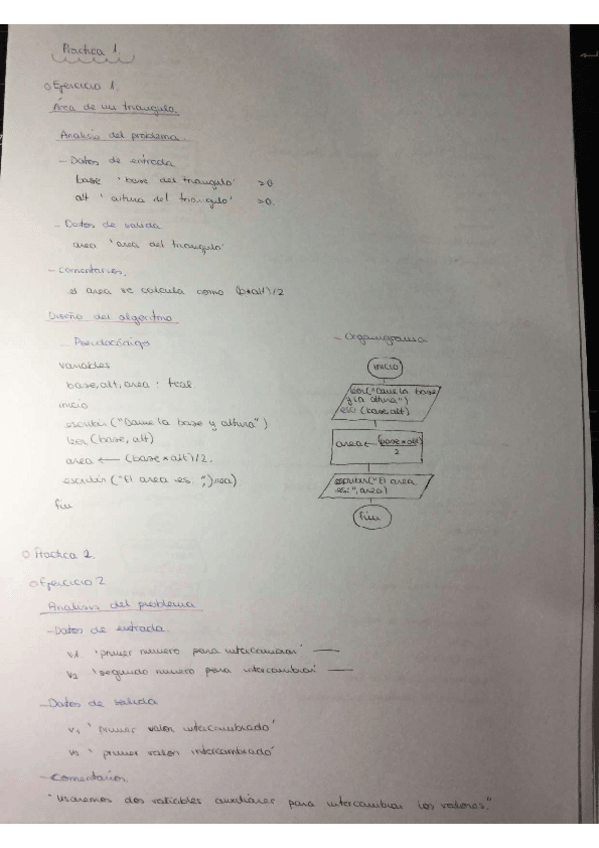 Practica 1.
○ Ejercicio 1.
Área de un triangulo.
Analisis del problema.
- Datos de entrada
base 'base del triangulo' >0
alt 'altura del triangulo' >0.
- Datos de salida
area 'area del triangulo'
- Comentarios.
area se calcula como (b*alt)/2
Diseño del algoritmo
- Pseudocódigo
variables
base, alt, area : real
inicio
escribir ("Dame la base y altura")
leer (base, alt)
area ← (base * alt)/2.
escribir ("El area es: ", area)
fin
- Organigrama
inicio
("Dame la base
y la altura")
(base, alt)
area ← (base * alt)
2
escribir ("El area
es: ", area)
Fin
○ Practica 2.
○ Ejercicio 2
Analisis del problema
- Datos de entrada
v1 'primer numero para intercambiar' —
v2 'segundo numero para intercambiar' —
- Datos de salida
v1 'primer valor intercambiado'
v2 'primer valor intercambiado'
- Comentarios
"Usaremos dos variables auxiliares para intercambiar los valores."